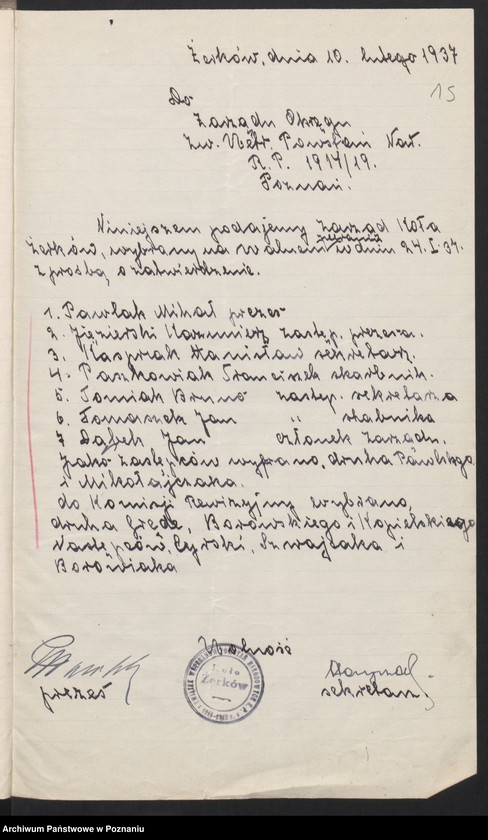 Żerków, dnia 10. lutego 1937
15
Do
Zarządu Okręgu
Zw. Wetr. Powstań Nar.
R.P. 1914/19.
Poznań.
Niniejszem podajemy Zarząd Koła
zebraniu
Żerków, wybrany na walnem w dniu 24.I.37.
z prośbą o zatwierdzenie.
1. Pawlak Michał prezes
2. Jezierski Kazimierz zastęp. prezesa.
3. Kasprzak Stanisław sekretarz.
4. Paszkowiak Franciszek skarbnik.
5. Tomiak Bruno zastęp. sekretarza
6. Tomaszek Jan " skabnika
7 Dąbek Jan członek zarządu.
Jako zastępców wybrano, druha Pawlskego
i Mikołajczaka.
do Komisji Rewizyjny wybrano,
druha Grede, Borowskiego i Kopielskiego
Następców, Cyrski, Szwajcaka i
Borowiaka
Wolność
Koło
Żerków
prezes
sekretarz
Archiwum Państwowe w Poznaniu